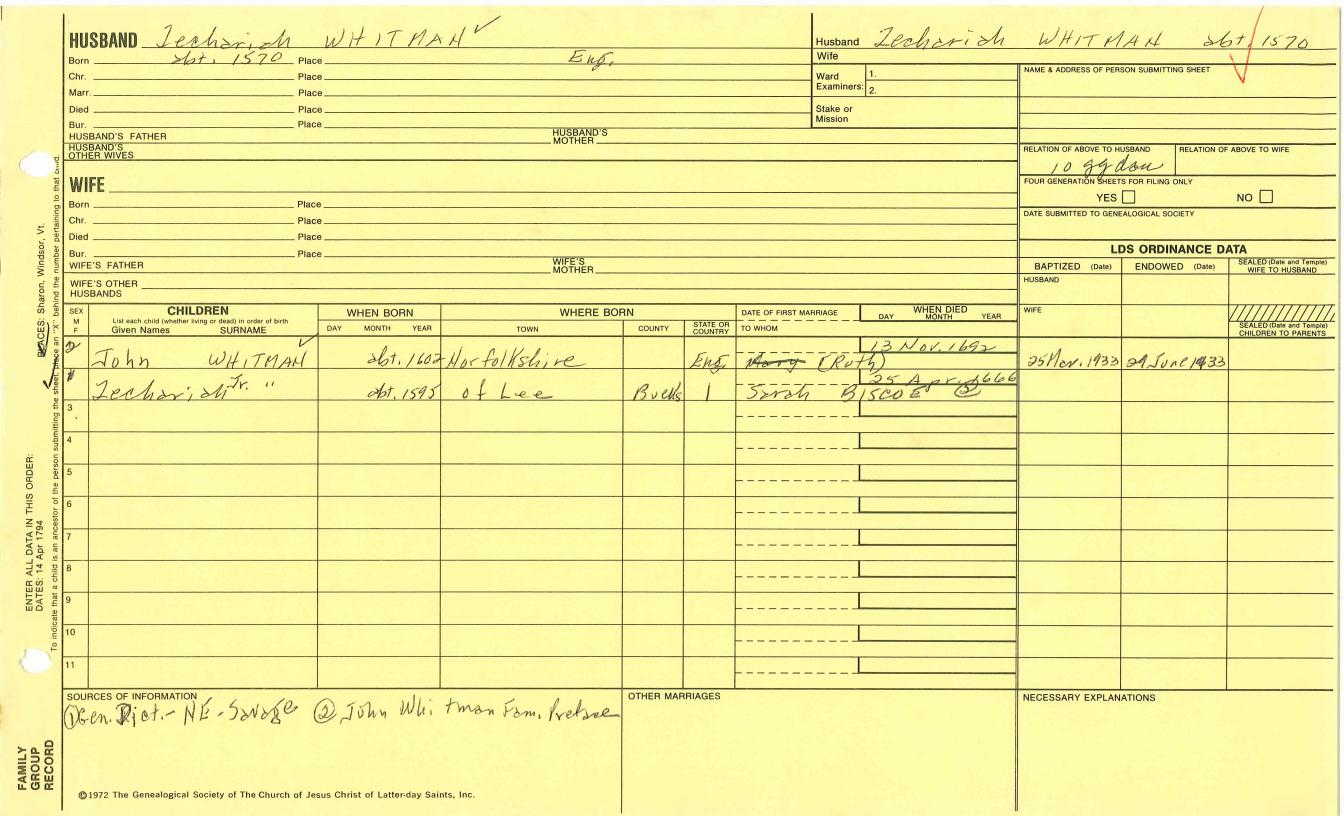 HUSBAND Zechariah WHITMAN ✓
Born abt. 1570 Place Eng.
Chr. Place
Marr. Place
Died Place
Bur. Place
HUSBAND'S FATHER HUSBAND'S MOTHER
HUSBAND'S OTHER WIVES
Husband Zechariah WHITMAN abt. 1570
Wife
Ward Examiners: 1.
2.
Stake or Mission
NAME & ADDRESS OF PERSON SUBMITTING SHEET
RELATION OF ABOVE TO HUSBAND RELATION OF ABOVE TO WIFE
10 ggdau
FOUR GENERATION SHEETS FOR FILING ONLY
YES NO
DATE SUBMITTED TO GENEALOGICAL SOCIETY
WIFE
Born Place
Chr. Place
Died Place
Bur. Place
WIFE'S FATHER WIFE'S MOTHER
WIFE'S OTHER HUSBANDS
LDS ORDINANCE DATA
BAPTIZED (Date) ENDOWED (Date) SEALED (Date and Temple) WIFE TO HUSBAND
HUSBAND
WIFE
SEALED (Date and Temple) CHILDREN TO PARENTS
SEX M F
CHILDREN
List each child (whether living or dead) in order of birth
Given Names SURNAME
WHEN BORN
DAY MONTH YEAR
WHERE BORN
TOWN COUNTY STATE OR COUNTRY
DATE OF FIRST MARRIAGE
TO WHOM
WHEN DIED
DAY MONTH YEAR
2 13 Nov. 1692
John WHITMAN ✓ abt. 1602 Norfolkshire Eng. Mary (Ruth) 25 Mar. 1933 29 June 1933
1 25 Apr. 1666
Zechariah Jr. " abt. 1595 of Lee Bucks 1 Sarah BISCOE ②
3
4
5
6
7
8
9
10
11
SOURCES OF INFORMATION
① Gen. Dict.- NE - Savage ② John Whitman Fam. Preface
OTHER MARRIAGES
NECESSARY EXPLANATIONS
©1972 The Genealogical Society of The Church of Jesus Christ of Latter-day Saints, Inc.
FAMILY GROUP RECORD
ENTER ALL DATA IN THIS ORDER:
DATES: 14 Apr 1794
PLACES: Sharon, Windsor, Vt.
To indicate that a child is an ancestor of the person submitting the sheet, place an "X" behind the number pertaining to that child.